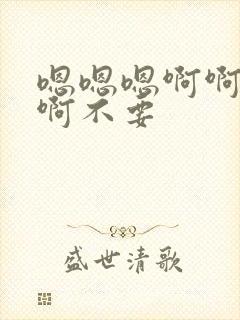 嗯嗯嗯啊啊
啊不要
盛世清歌